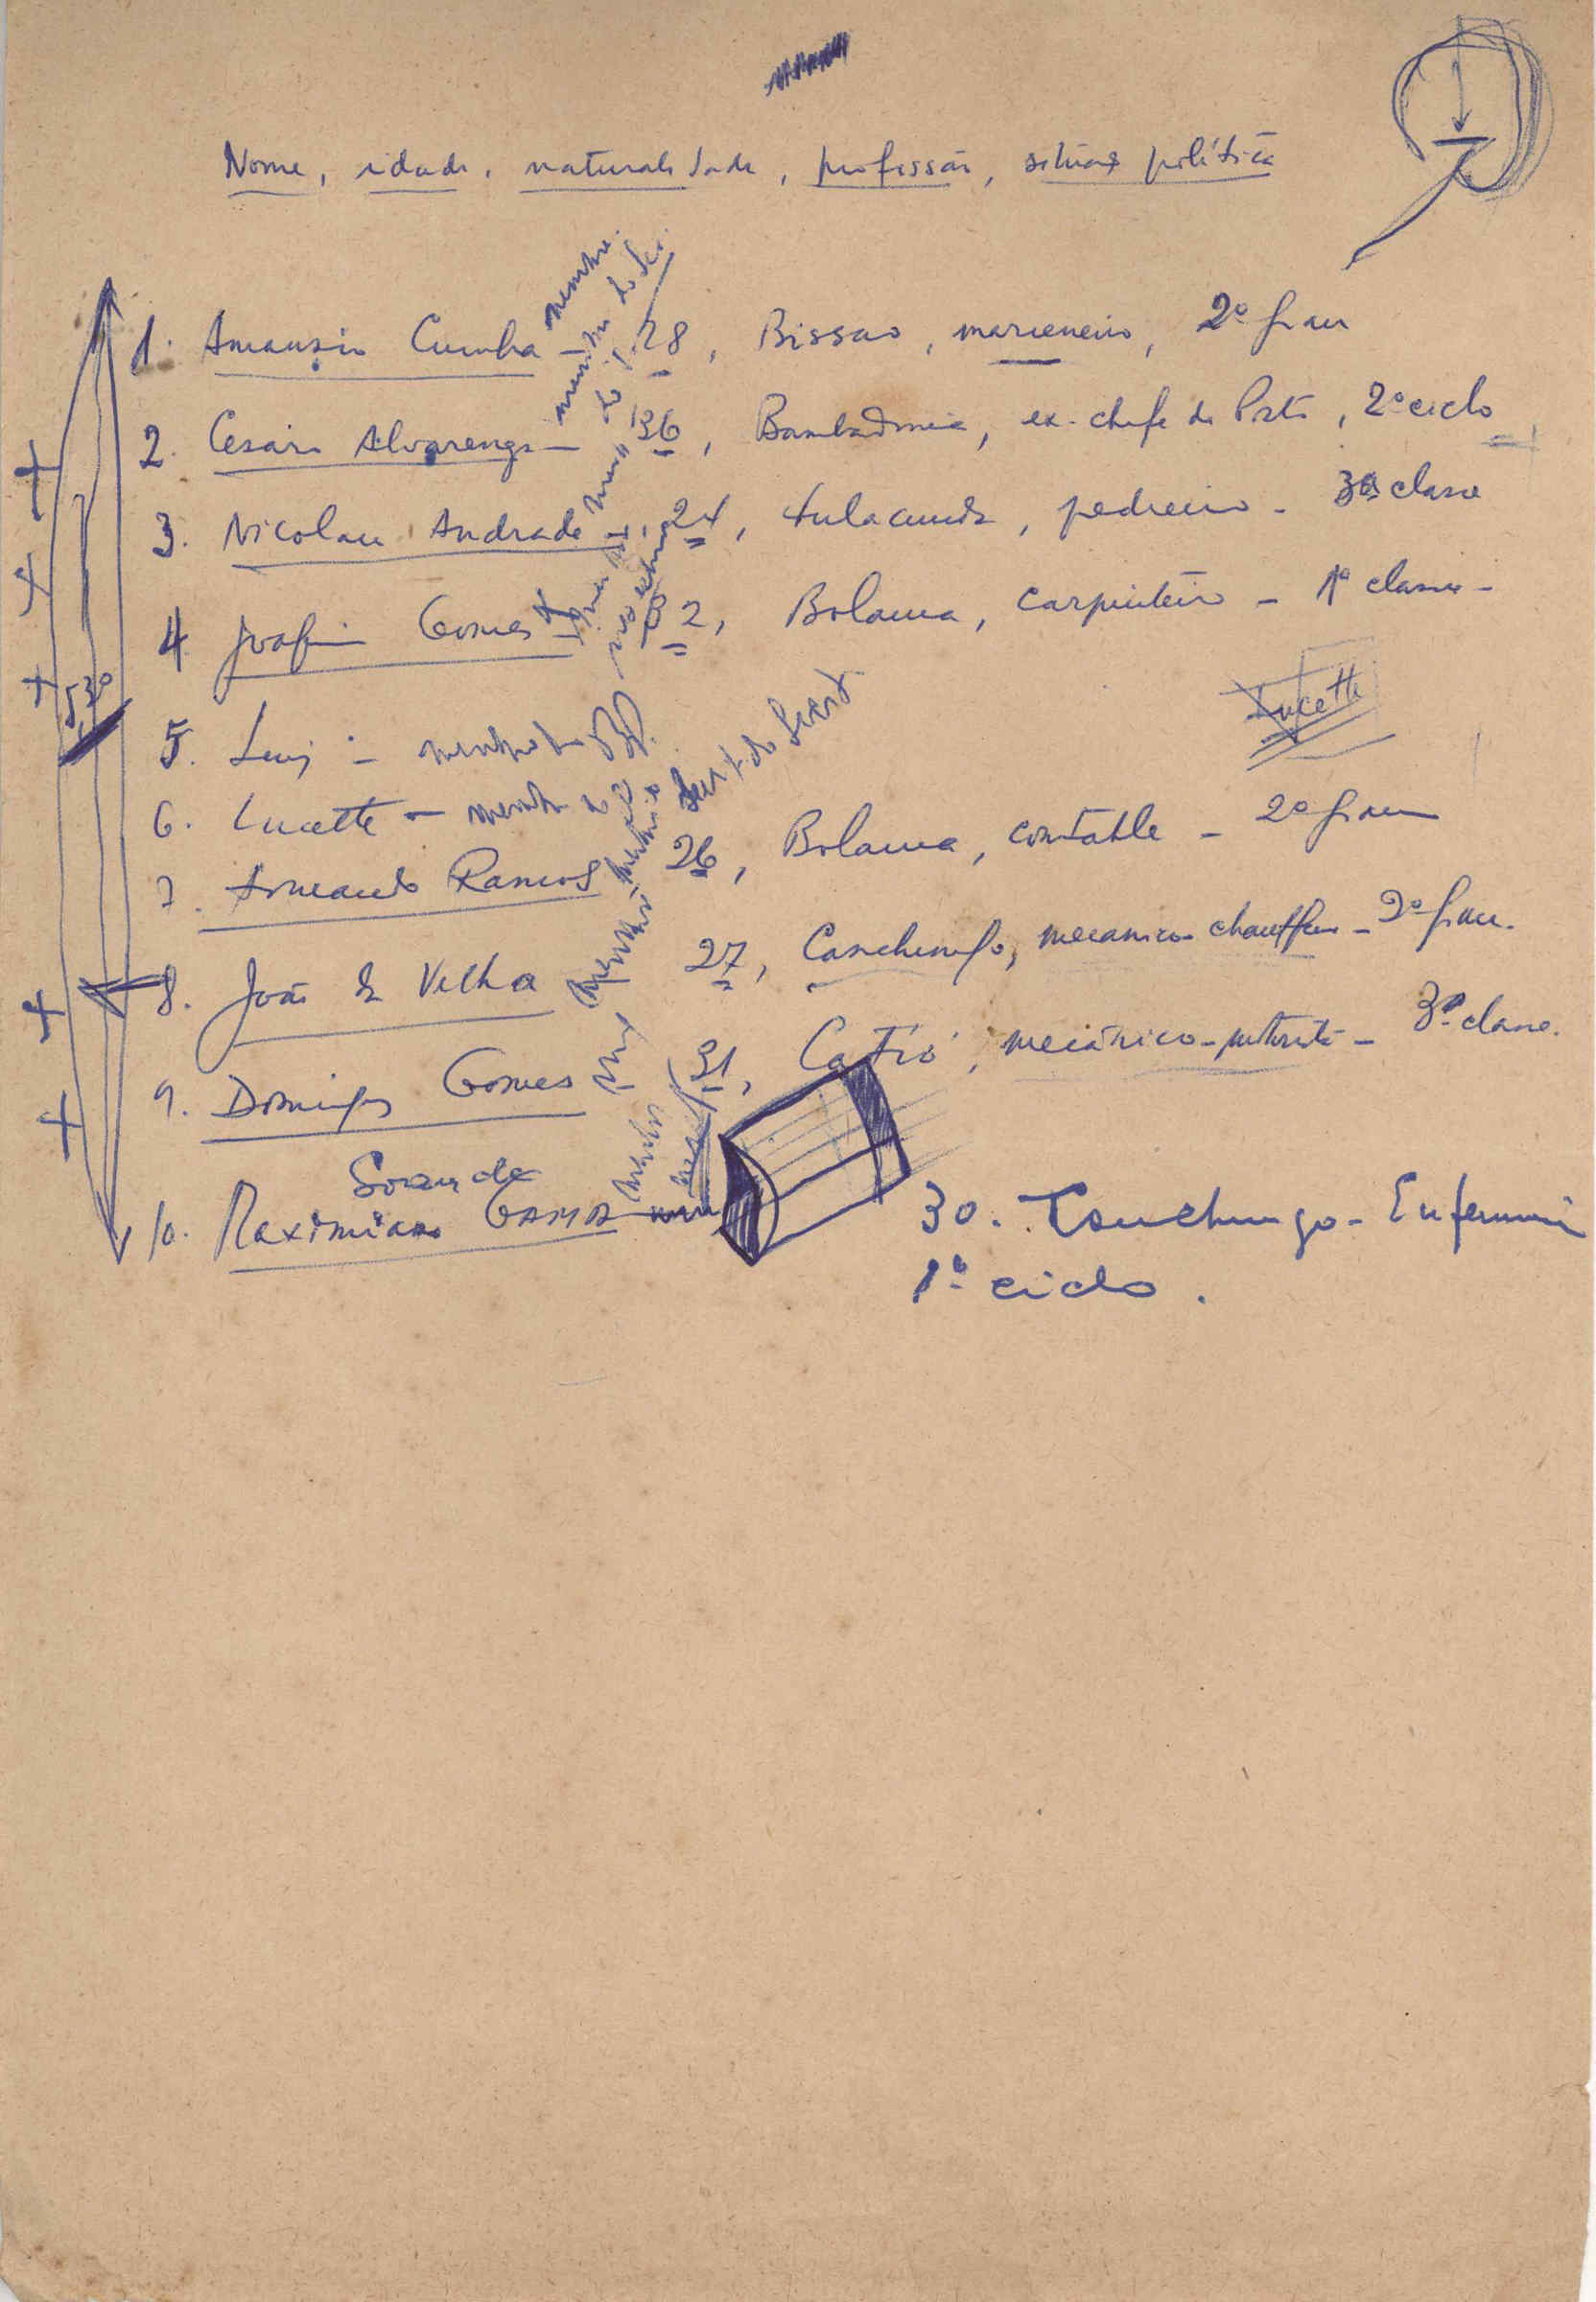 Nome, idade, naturalidade, profissão, situação política
1. Amansio Cunha - 28, Bissao, marceneiro, 2º grau
2. Cesário Alvarenga - 36, Bambadinca, ex-chefe de Posto, 2º ciclo
3. Nicolau Andrade - 24, Fulacunda, pedreiro - 3ª classe
4 Joaquim Gomes - 32, Bolama, carpinteiro - 1ª classe -
Lucette
5. Luiz - membro do
6. Lucette - membro do
7. Armando Ramos 26, Bolama, contable - 2º grau
8. João da Velha 27, Canchungo, mecanico-chauffeur - 2º grau.
9. Domingos Gomes 31, Catió, mecânico-motorista - 3ª classe.
10. Maximiano GAMA 30. Canchungo - Enfermeiro
1º ciclo.
membro.
membro do
530